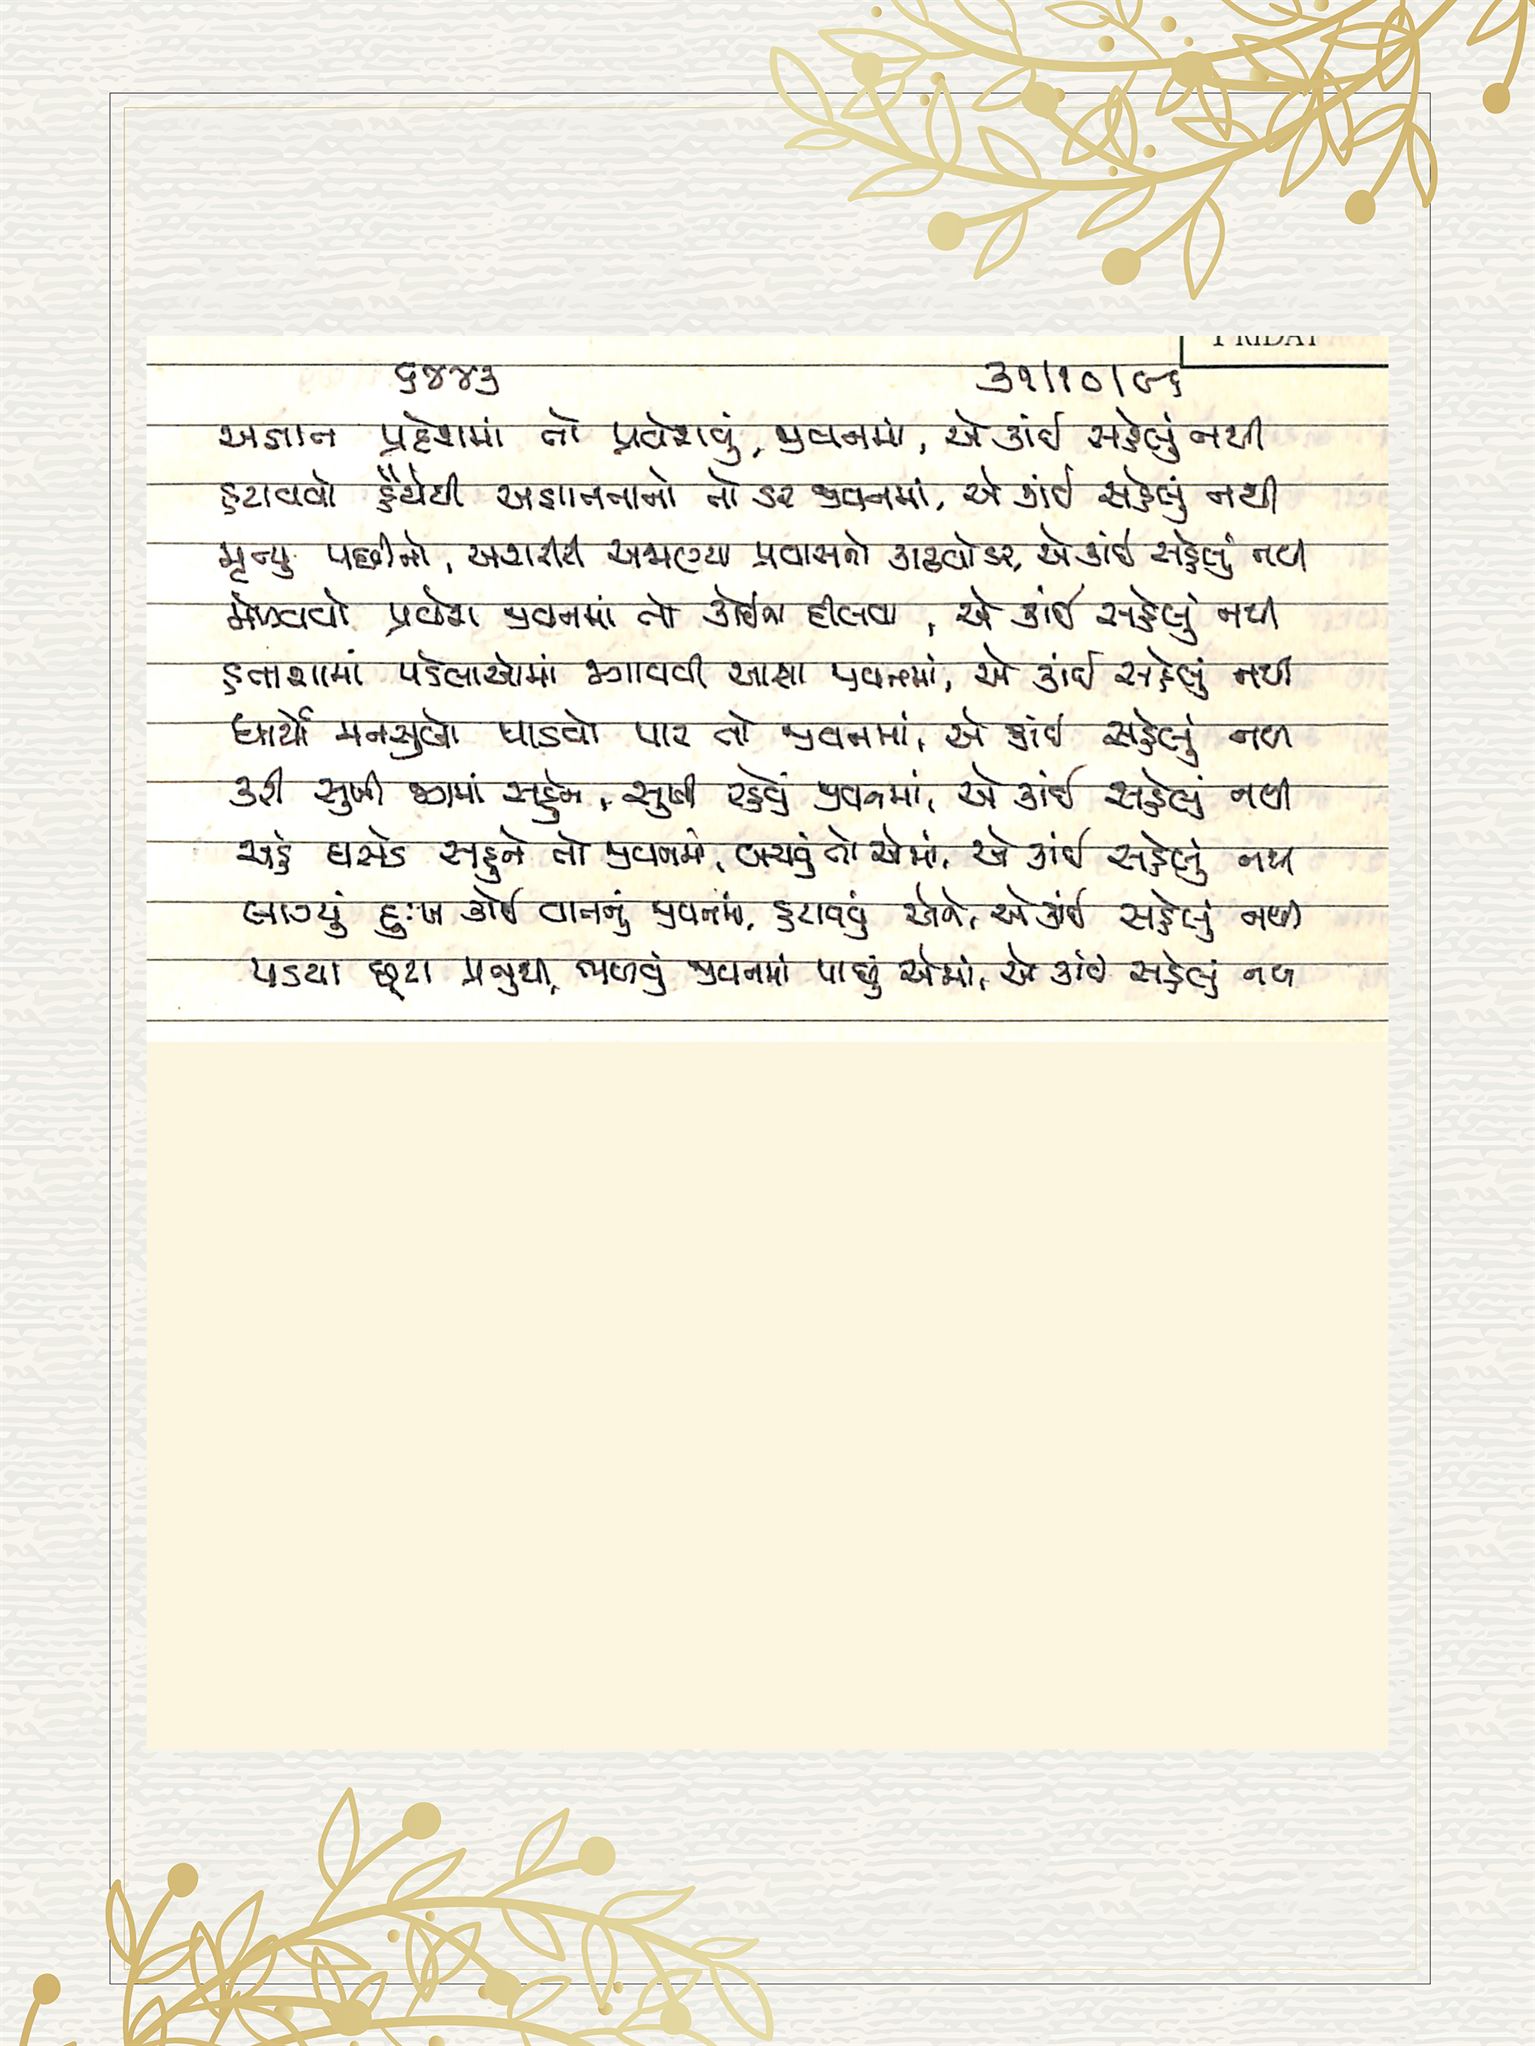 FRIDAY
૬૪૪૩ ૩૧/૧૦/૯૬
અજ્ઞાન પ્રદેશમાં તો પ્રવેશવું, જીવનમાં, એ કાંઈ સહેલું નથી
હટાવવો હૈયેથી અજ્ઞાનતાનો તો ડર જીવનમાં, એ કાંઈ સહેલું નથી
મૃત્યુ પછીનો, અશરીરી અજાણ્યા પ્રવાસનો કાઢવો ડર, એ કાંઈ સહેલું નથી
મેળવવો પ્રવેશ જીવનમાં તો કોઈના દીલમાં, એ કાંઈ સહેલું નથી
હતાશામાં પડેલાઓમાં જગાવવી આશા જીવનમાં, એ કાંઈ સહેલું નથી
ધાર્યો મનસુબો પાડવો પાર તો જીવનમાં, એ કાંઈ સહેલું નથી
કરી સુખી જગમાં સહુને, સુખી રહેવું જીવનમાં, એ કાંઈ સહેલું નથી
અહં ઘસેડે સહુને તો જીવનમાં, બચવું તો એમાં, એ કાંઈ સહેલું નથી
લાગ્યું દુઃખ કોઈ વાતનું જીવનમાં, હટાવવું એને, એ કાંઈ સહેલું નથી
પડયા છૂટા પ્રભુથી, ભળવું જીવનમાં પાછું એમાં, એ કાંઈ સહેલું નથી